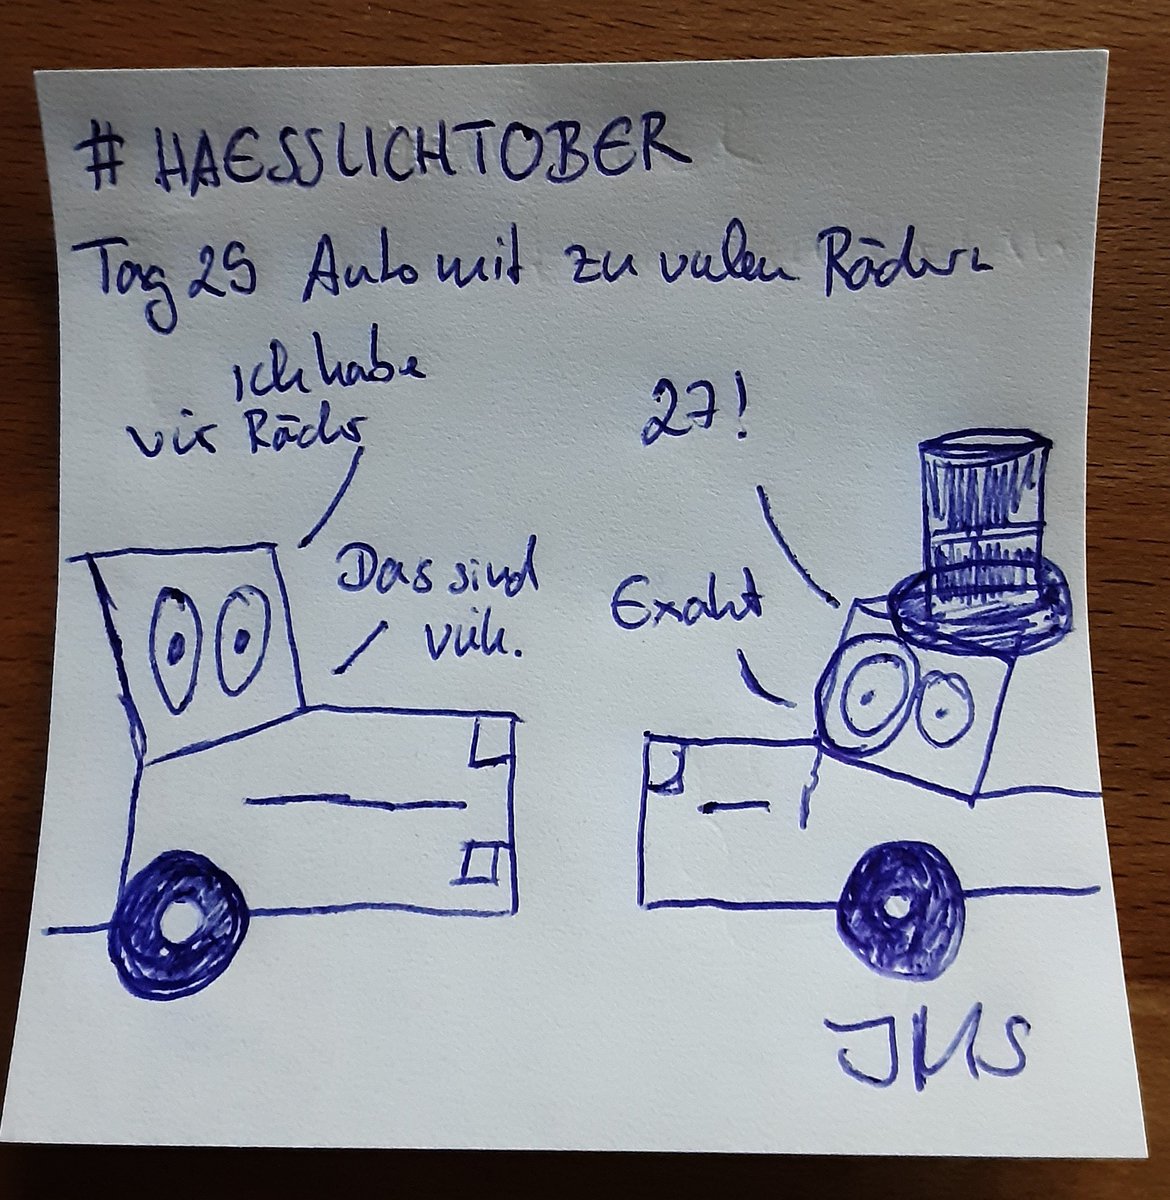 # HAESSLICHTOBER
Tag 25 Auto mit zu vielen Rädern
ich habe
vier Räder
27!
Das sind
viele.
Exakt
JMS